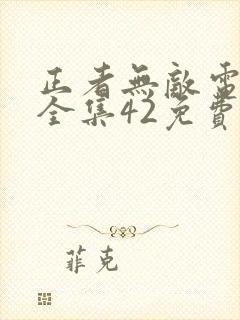 正者無敵電
全集42免費
菲克